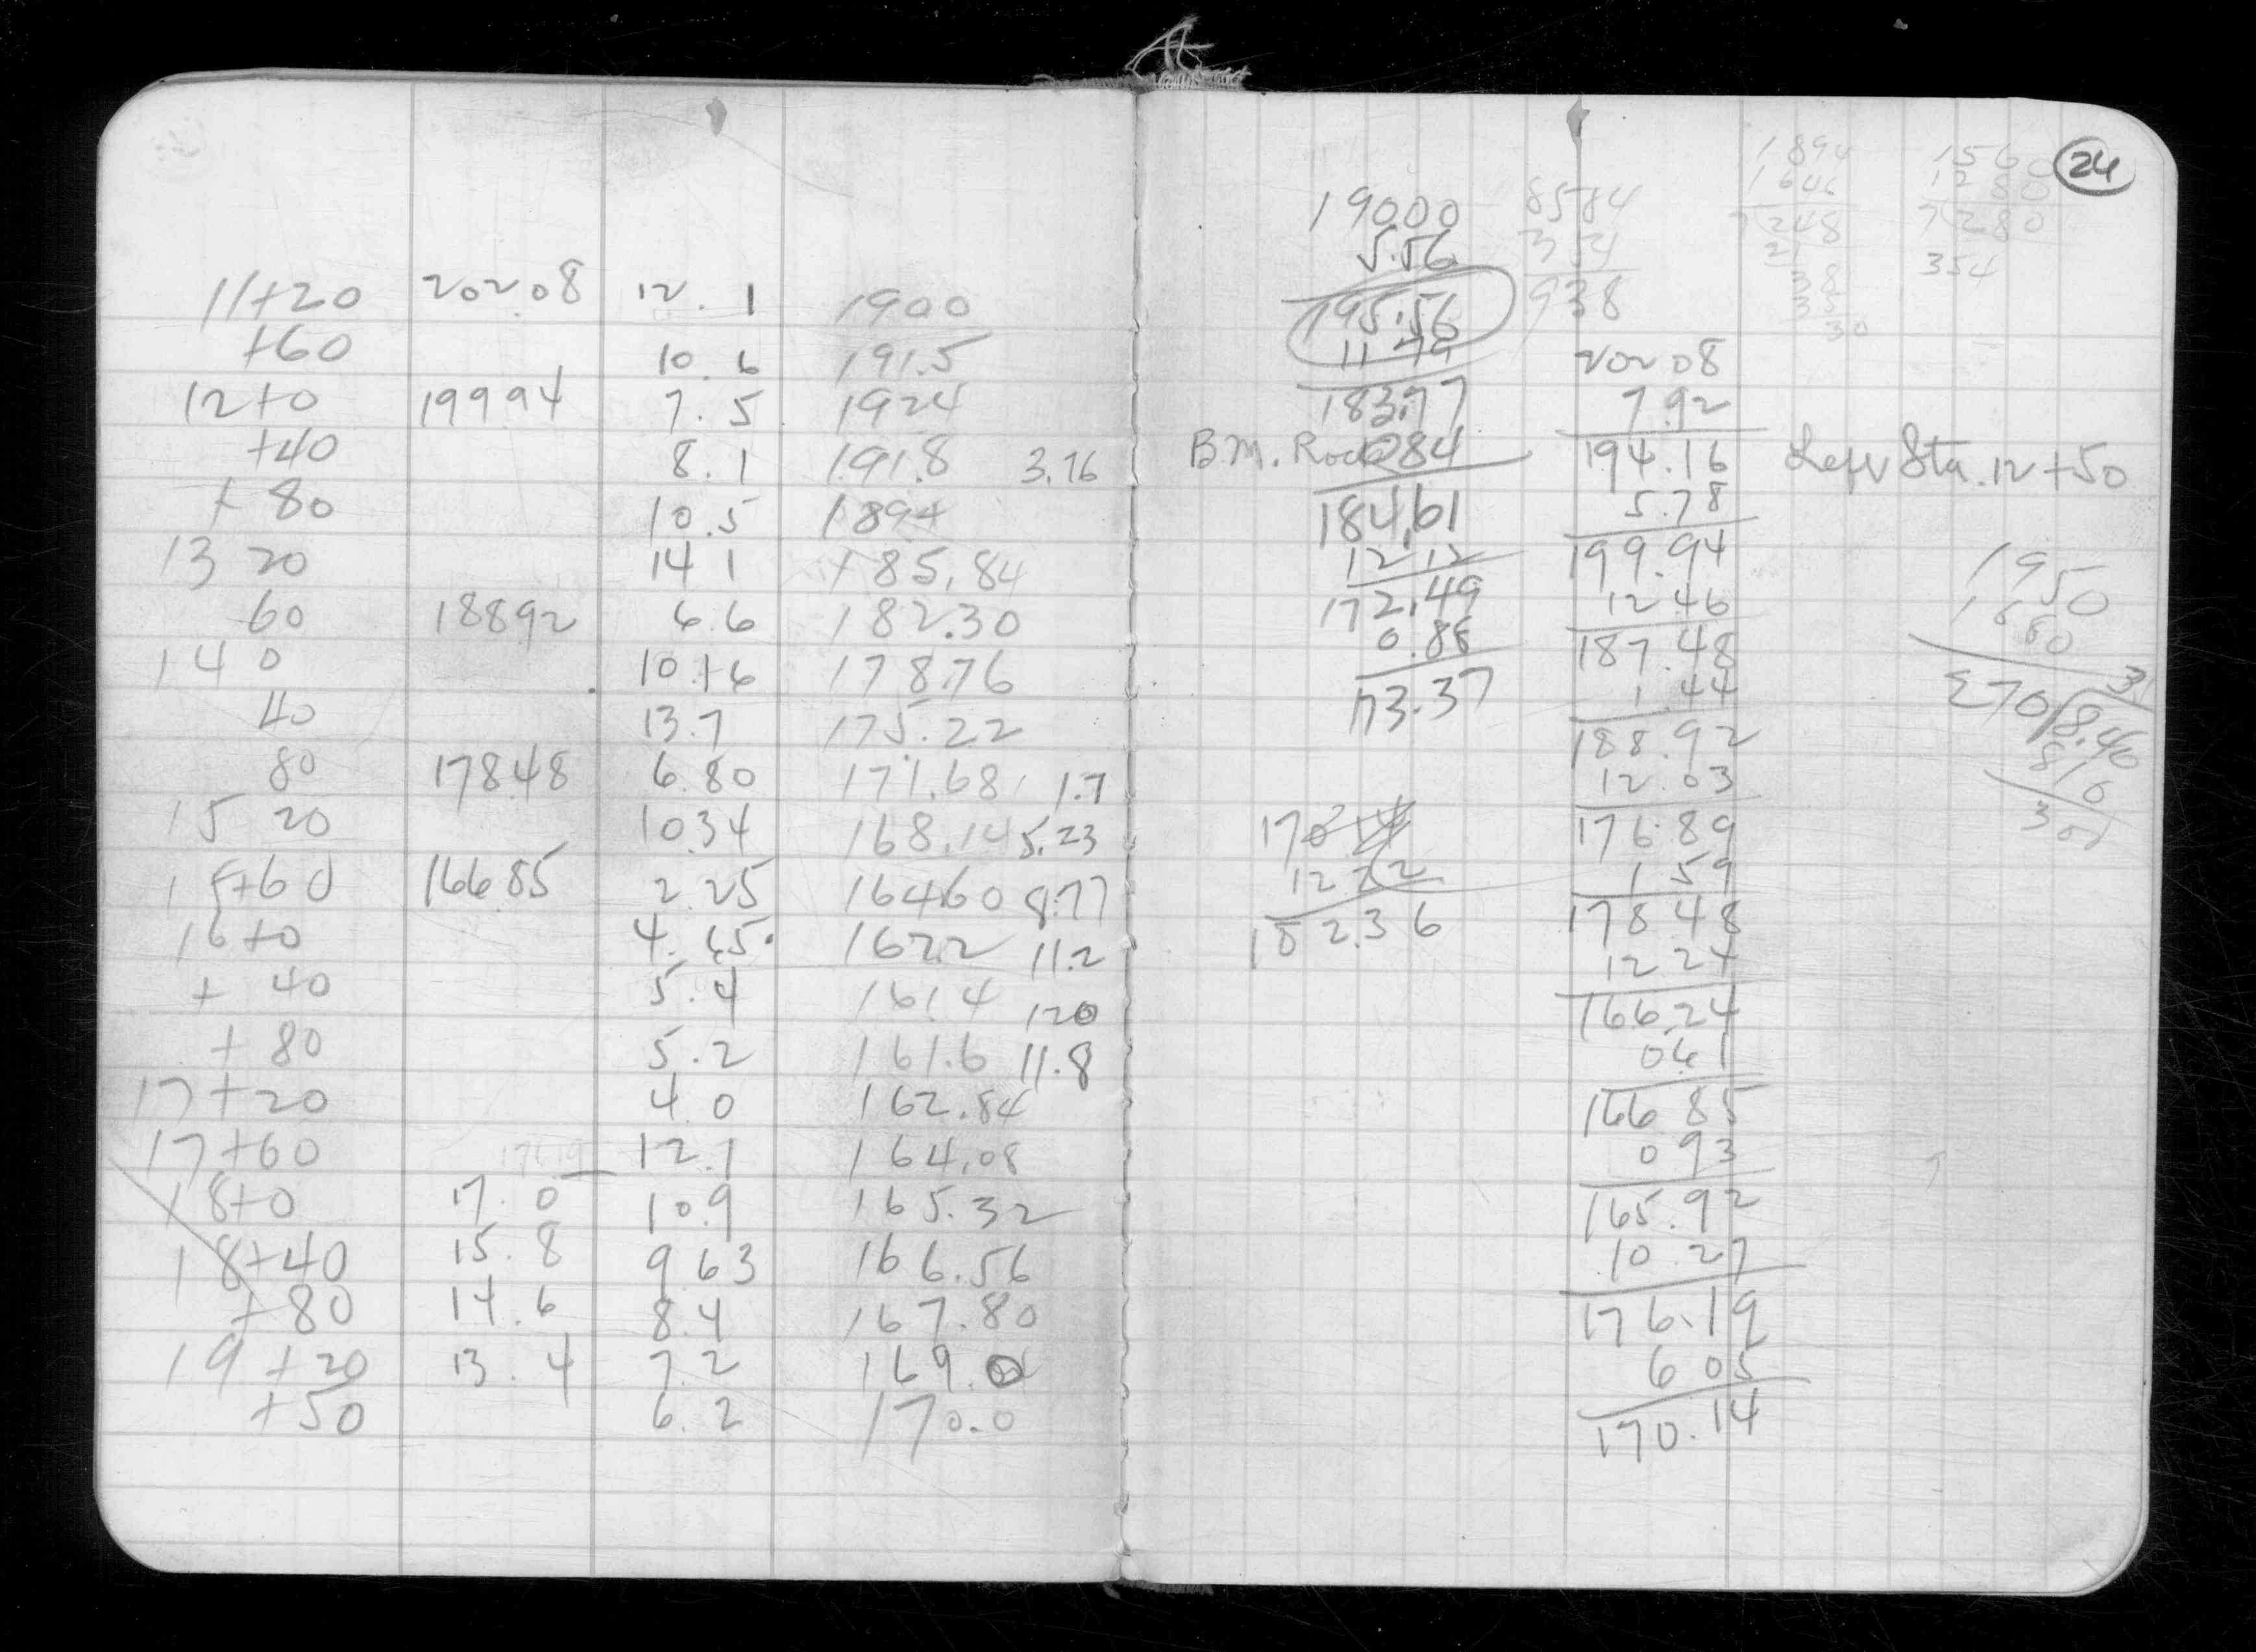 11+20 202.08 12.1 190.0
+60 10.6 191.5
12+0 199.94 7.5 192.4
+40 8.1 191.8 3.76
+80 10.5 189.4
13 20 14.1 185.84
60 188.92 6.6 182.30
14 0 10.16 178.76
40 13.7 175.22
80 178.48 6.80 171.68 1.7
15 20 10.34 168.14 5.23
15+60 166.85 2.25 164.60 8.77
16+0 4.65 162.2 11.2
+40 5.4 161.4 12.0
+80 5.2 161.6 11.8
17+20 4.0 162.84
17+60 12.1 164.08
18+0 17.0 10.9 165.32
18+40 15.8 9.63 166.56
+80 14.6 8.4 167.80
19+20 13.4 7.2 169.04
+50 6.2 170.0
24
190.00
5.56
195.56
11.79
183.77
B.M. Rock 0.84
184.61
12.12
172.49
0.88
173.37
12.22
182.36
8584
354
938
202.08
7.92
194.16 Left Sta. 12+50
5.78
199.94
12.46
187.48
1.44
188.92
12.03
176.89
1.59
178.48
12.24
166.24
0.61
166.85
0.93
165.92
10.27
176.19
6.05
170.14
1894
1646
7 248
21
38
35
30
1560
1280
7 280
354
1950
1680
270 8.46
816
30